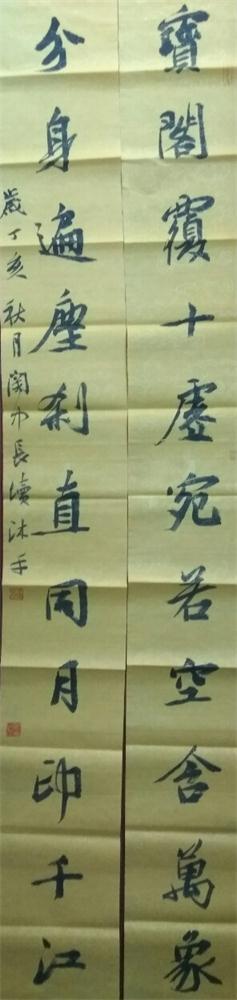 寶閣覆十虛宛若空含萬象
分身遍塵刹直同月印千江
歲丁亥秋月閔中長瀆沐手